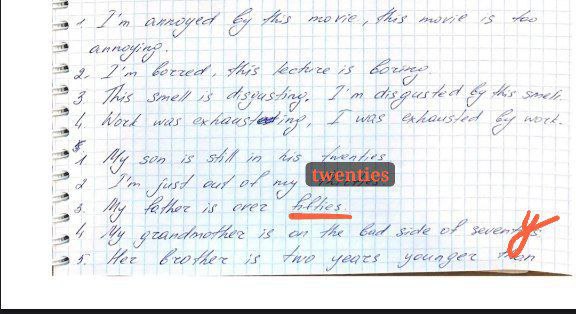 1. I'm annoyed by this movie, this movie is too
annoying.
2. I'm borred, this lecture is boring.
3. This smell is disgusting. I'm disgusted by this smell.
4. Work was exhausting, I was exhausted by work.
5.
1 My son is still in his twenties
twenties
2 I'm just out of my
3. My father is over fifties.
4 My grandmother is on the bad side of seventy
5. Her brother is two years younger than